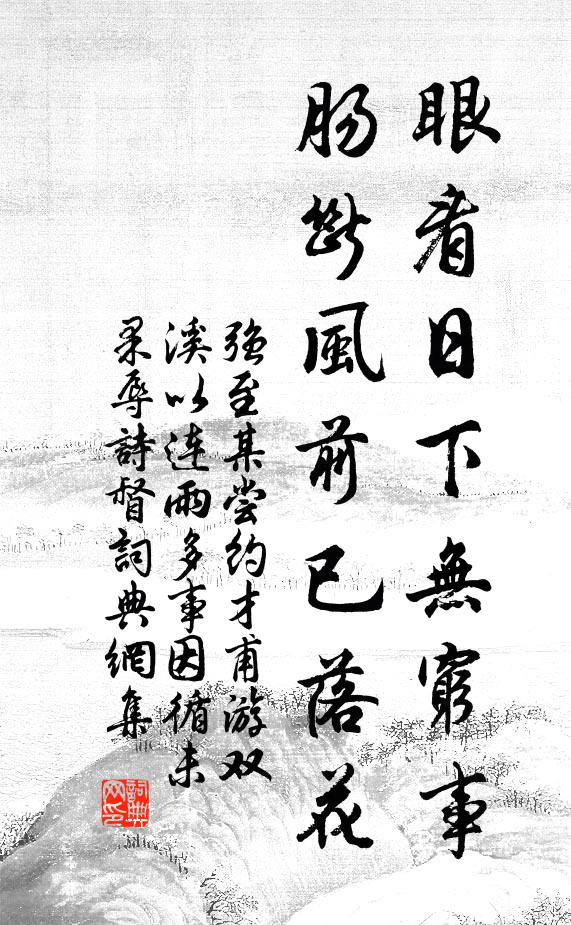 眼看日下無窮事
腸斷風前已落花
強至某尝約才甫游双
溪以连雨多事因循未
果辱詩督詞典網集
詞典网印